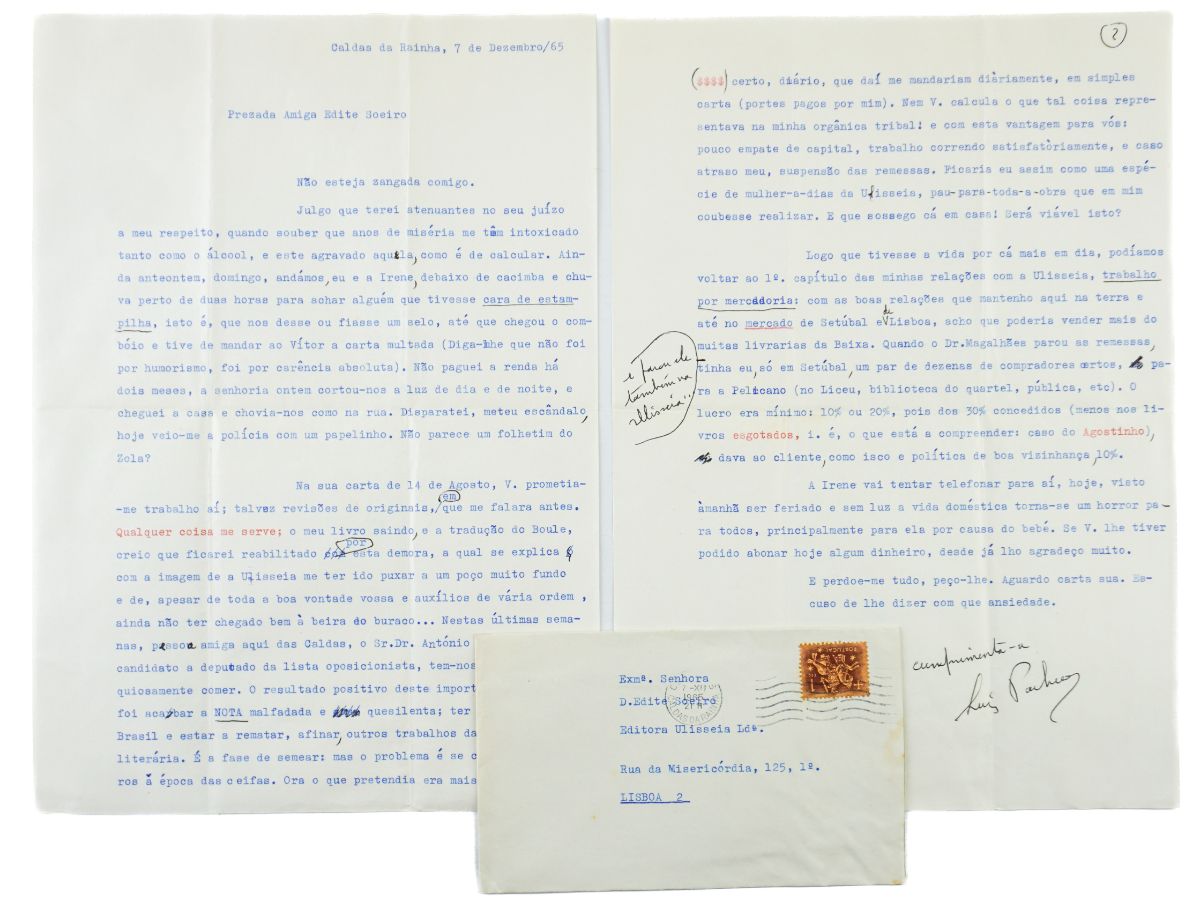 Caldas da Rainha, 7 de Dezembro/65
Prezada Amiga Edite Soeiro
Não esteja zangada comigo.
Julgo que terei atenuantes no seu juízo
a meu respeito, quando souber que anos de miséria me têm intoxicado
tanto como o álcool, e este agravado aquela, como é de calcular. Ain-
da anteontem, domingo, andámos, eu e a Irene, debaixo de cacimba e chu-
va perto de duas horas para achar alguém que tivesse cara de estam-
pilha, isto é, que nos desse ou fiasse um selo, até que chegou o com-
bóio e tive de mandar ao Vítor a carta multada (Diga-lhe que não foi
por humorismo, foi por carência absoluta). Não paguei a renda há
dois meses, a senhoria ontem cortou-nos a luz de dia e de noite, e
cheguei a casa e chovia-nos como na rua. Disparatei, meteu escândalo,
hoje veio-me a polícia com um papelinho. Não parece um folhetim do
Zola?
Na sua carta de 14 de Agosto, V. prometia-
-me trabalho aí; talvez revisões de originais, em que me falara antes.
Qualquer coisa me serve; o meu livro saindo, e a tradução do Boule,
creio que ficarei reabilitado por esta demora, a qual se explica
com a imagem de a Ulisseia me ter ido puxar a um poço muito fundo
e de, apesar de toda a boa vontade vossa e auxílios de vária ordem ,
ainda não ter chegado bem à beira do buraco... Nestas últimas sema-
nas, pessoa amiga aqui das Caldas, o Sr.Dr. António
candidato a deputado da lista oposicionista, tem-nos
quiosamente comer. O resultado positivo deste import
foi acabar a NOTA malfadada e quesilenta; ter
Brasil e estar a rematar, afinar, outros trabalhos da
literária. É a fase de semear: mas o problema é se c
ros à época das ceifas. Ora o que pretendia era mais
2
($$$$) certo, diário, que daí me mandariam diàriamente, em simples
carta (portes pagos por mim). Nem V. calcula o que tal coisa repre-
sentava na minha orgânica tribal! e com esta vantagem para vós:
pouco empate de capital, trabalho correndo satisfatòriamente, e caso
atraso meu, suspensão das remessas. Ficaria eu assim como uma espé-
cie de mulher-a-dias da Ulisseia, pau-para-toda-a-obra que em mim
coubesse realizar. E que sossego cá em casa! Será viável isto?
Logo que tivesse a vida por cá mais em dia, podíamos
voltar ao 1º. capítulo das minhas relações com a Ulisseia, trabalho
por mercadoria: com as boas relações que mantenho aqui na terra e
até no mercado de Setúbal e de Lisboa, acho que poderia vender mais do
muitas livrarias da Baixa. Quando o Dr.Magalhães parou as remessas,
tinha eu, só em Setúbal, um par de dezenas de compradores certos, pa-
ra a Pelicano (no Liceu, biblioteca do quartel, pública, etc). O
lucro era mínimo: 10% ou 20%, pois dos 30% concedidos (menos nos li-
vros esgotados, i. é, o que está a compreender: caso do Agostinho),
dava ao cliente, como isco e política de boa vizinhança, 10%.
é parou ele
também na
Ulisseia!!
A Irene vai tentar telefonar para aí, hoje, visto
àmanhã ser feriado e sem luz a vida doméstica torna-se um horror pa-
ra todos, principalmente para ela por causa do bebé. Se V. lhe tiver
podido abonar hoje algum dinheiro, desde já lho agradeço muito.
E perdoe-me tudo, peço-lhe. Aguardo carta sua. Es-
cuso de lhe dizer com que ansiedade.
cumprimenta-a
Luiz Pacheco
PORTUGAL
1965
CALDAS DA RAINHA
Exmª. Senhora
D.Edite Soeiro
Editora Ulisseia Ldª.
Rua da Misericórdia, 125, 1º.
LISBOA 2